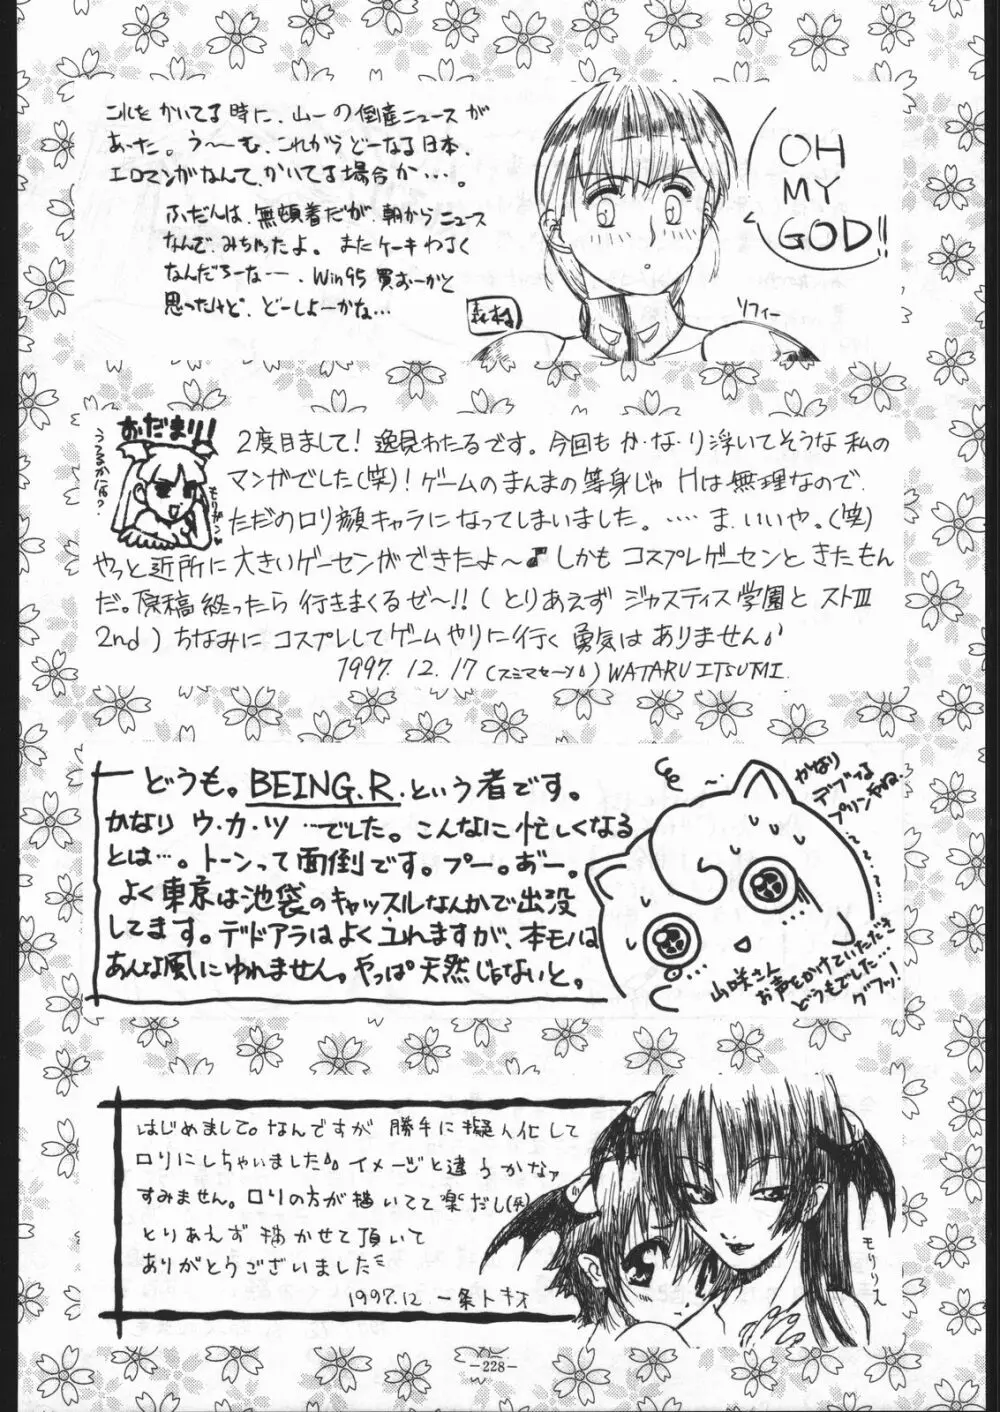 これをかいてる時に、山一の倒産ニュースが
あった。う〜む、これからどーなる日本、
エロマンガなんて、かいてる場合か・・・。
ふだんは、無頓着だが、朝からニュース
なんで、みちゃったよ。またケーキわるく
なんだろーなー、Win95買おーかと
思ったけど、どーしよーかな…
OH
MY
GOD!!
森村
ソフィー
おだまり!
うるるかに何?
モリガン
2度目まして!逸見わたるです。今回も か・な・り浮いてそうな私の
マンガでした(笑)!ゲームのまんまの等身じゃ Hは無理なので、
ただのロリ顔キャラになってしまいました。・・・・ま、いいや。(笑)
やっと近所に大きいゲーセンができたよ〜♪しかもコスプレゲーセンときたもん
だ。原稿終ったら行きまくるぜ〜!!(とりあえず ジャスティス学園と ストⅢ
2nd)ちなみにコスプレしてゲームやりに行く勇気はありません
1997.12.17(スミマセ〜ン)WATARU ITSUMI.
どうも。BEING.R.という者です。
かなり ウ・カ・ツ…でした。こんなに忙しくなる
とは…。トーンって面倒です。プー。あー。
よく東京は池袋のキャッスルなんかで出没
してます。デドアラはよくユれますが、本モノは
あんな風にゆれません。やっぱ天然じゃないと。
かなり
デブィな
プリンやね。
山咲さん
お声をかけていただき
どうもでした…
グフッ!
はじめまして。なんですが勝手に擬人化して
ロリにしちゃいました イメージと違うかなァ
すみません。ロリの方が描いてて楽だし(死)
とりあえず 描かせて頂いて
ありがとうございました
1997.12 一条トキオ
モリリスえ
-228-